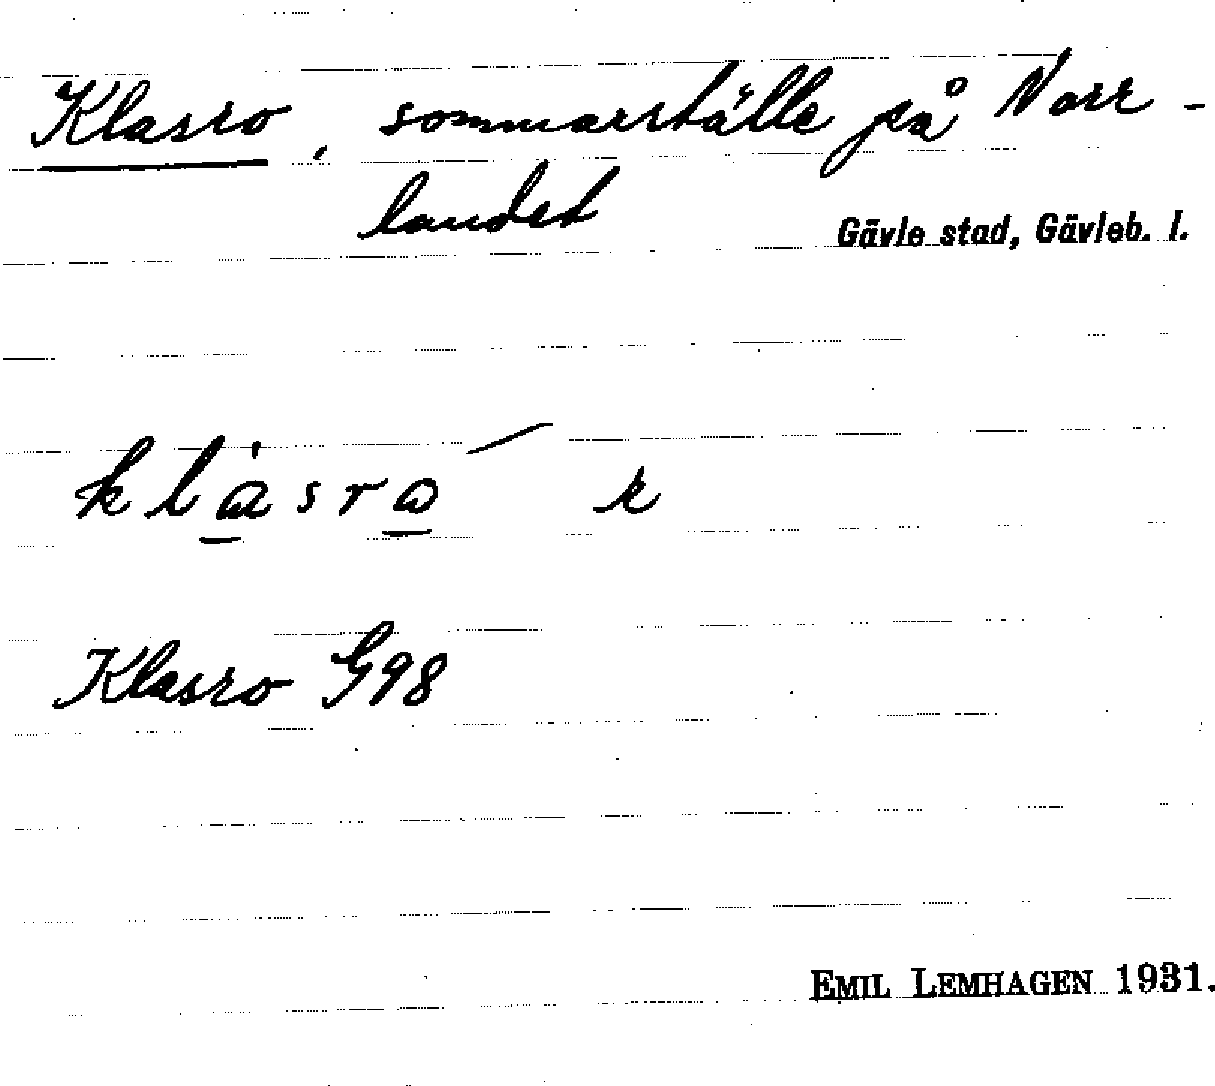 Klasro, sommarställe på Norr-
landet
Gävle stad, Gävleb. l.
klásrω̱ ´ k
Klasro G98
EMIL LEMHAGEN 1931.